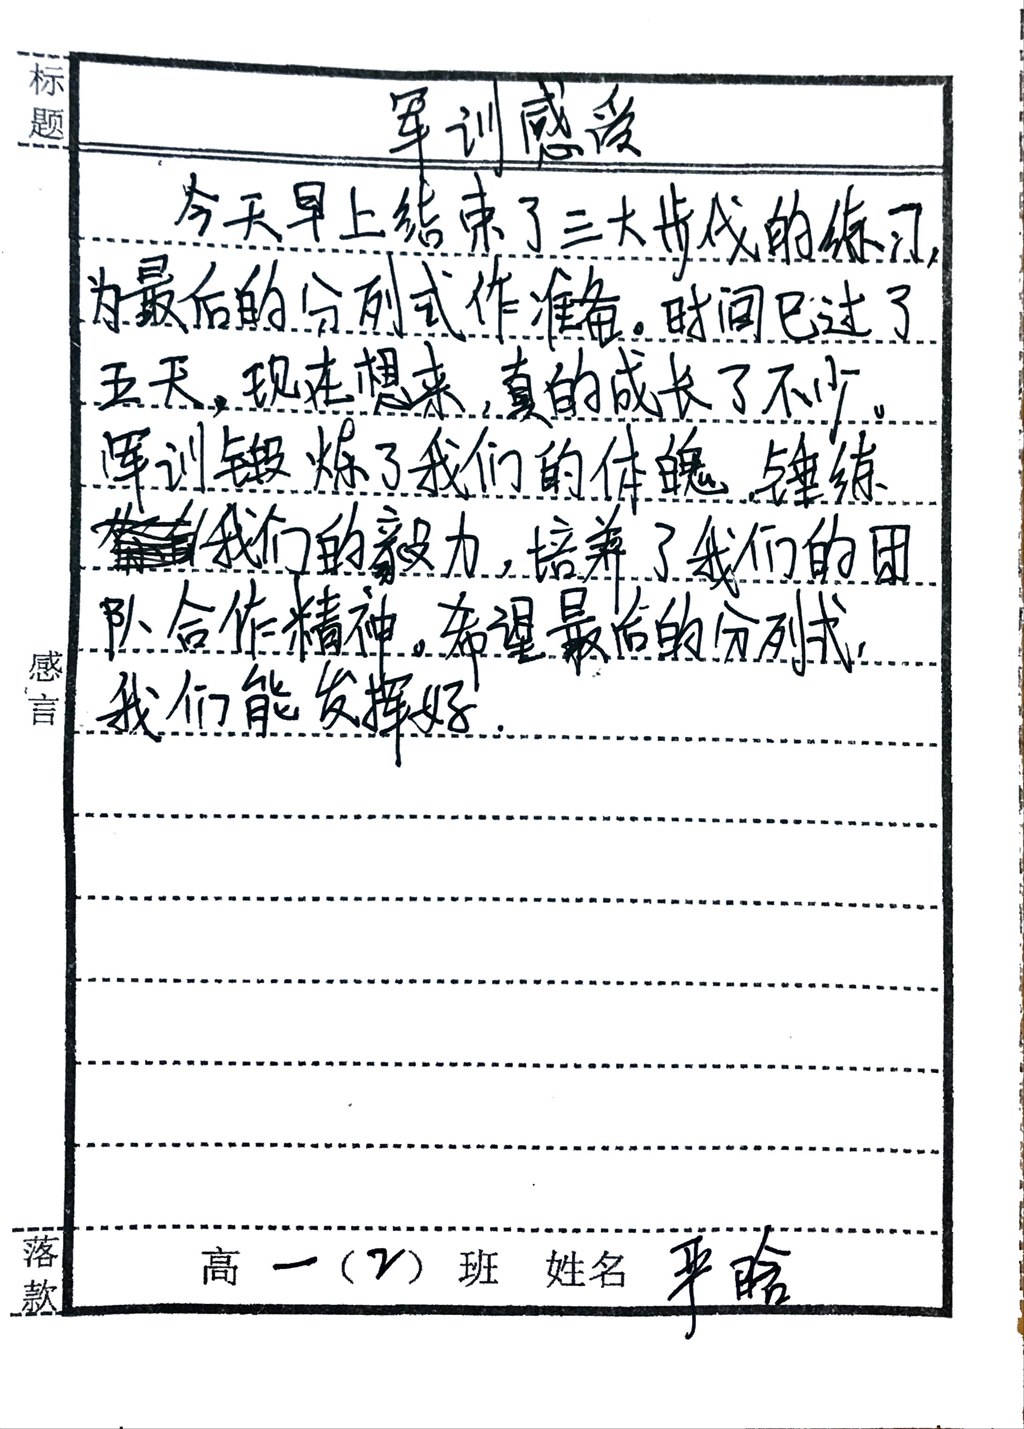 标题
军训感受
今天早上结束了三大步伐的练习，
为最后的分列式作准备。时间已过了
五天，现在想来，真的成长了不少。
军训锻炼了我们的体魄，锤练
我们的毅力，培养了我们的团
队合作精神。希望最后的分列式，
我们能发挥好．
感言
落款
高一（2）班 姓名 平晗